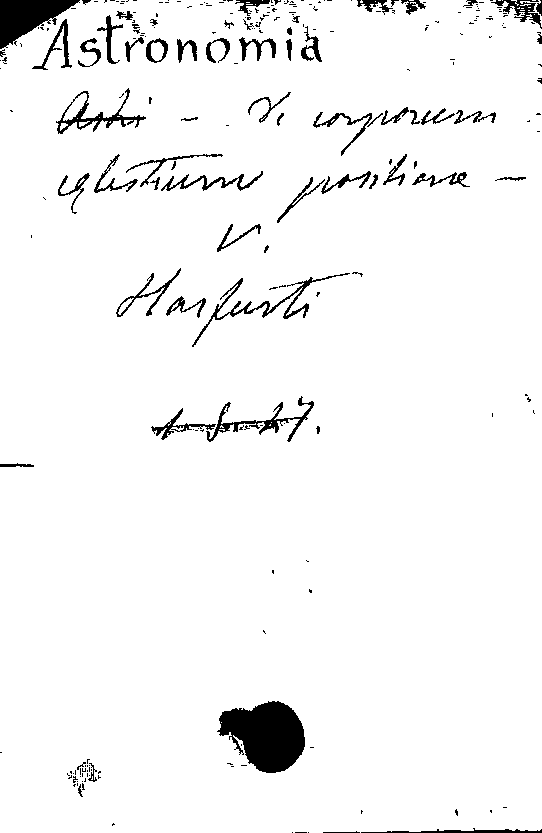 Astronomia
Astri - V. corporum
cęlestium positione -
V.
Harfurti
1-8-27.